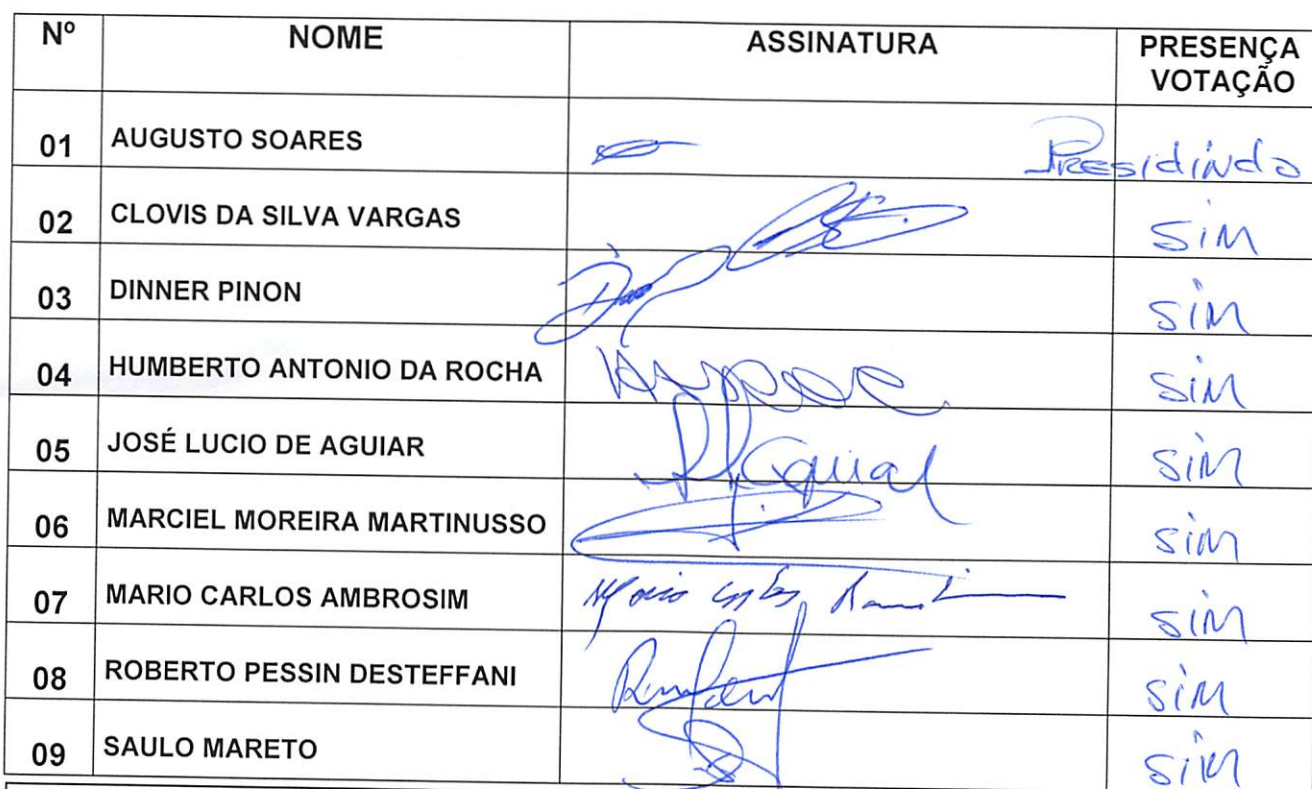 Nº NOME ASSINATURA PRESENÇA VOTAÇÃO
01 AUGUSTO SOARES Presidindo
02 CLOVIS DA SILVA VARGAS SIM
03 DINNER PINON SIM
04 HUMBERTO ANTONIO DA ROCHA SIM
05 JOSÉ LUCIO DE AGUIAR SIM
06 MARCIEL MOREIRA MARTINUSSO SIM
07 MARIO CARLOS AMBROSIM SIM
08 ROBERTO PESSIN DESTEFFANI SIM
09 SAULO MARETO SIM